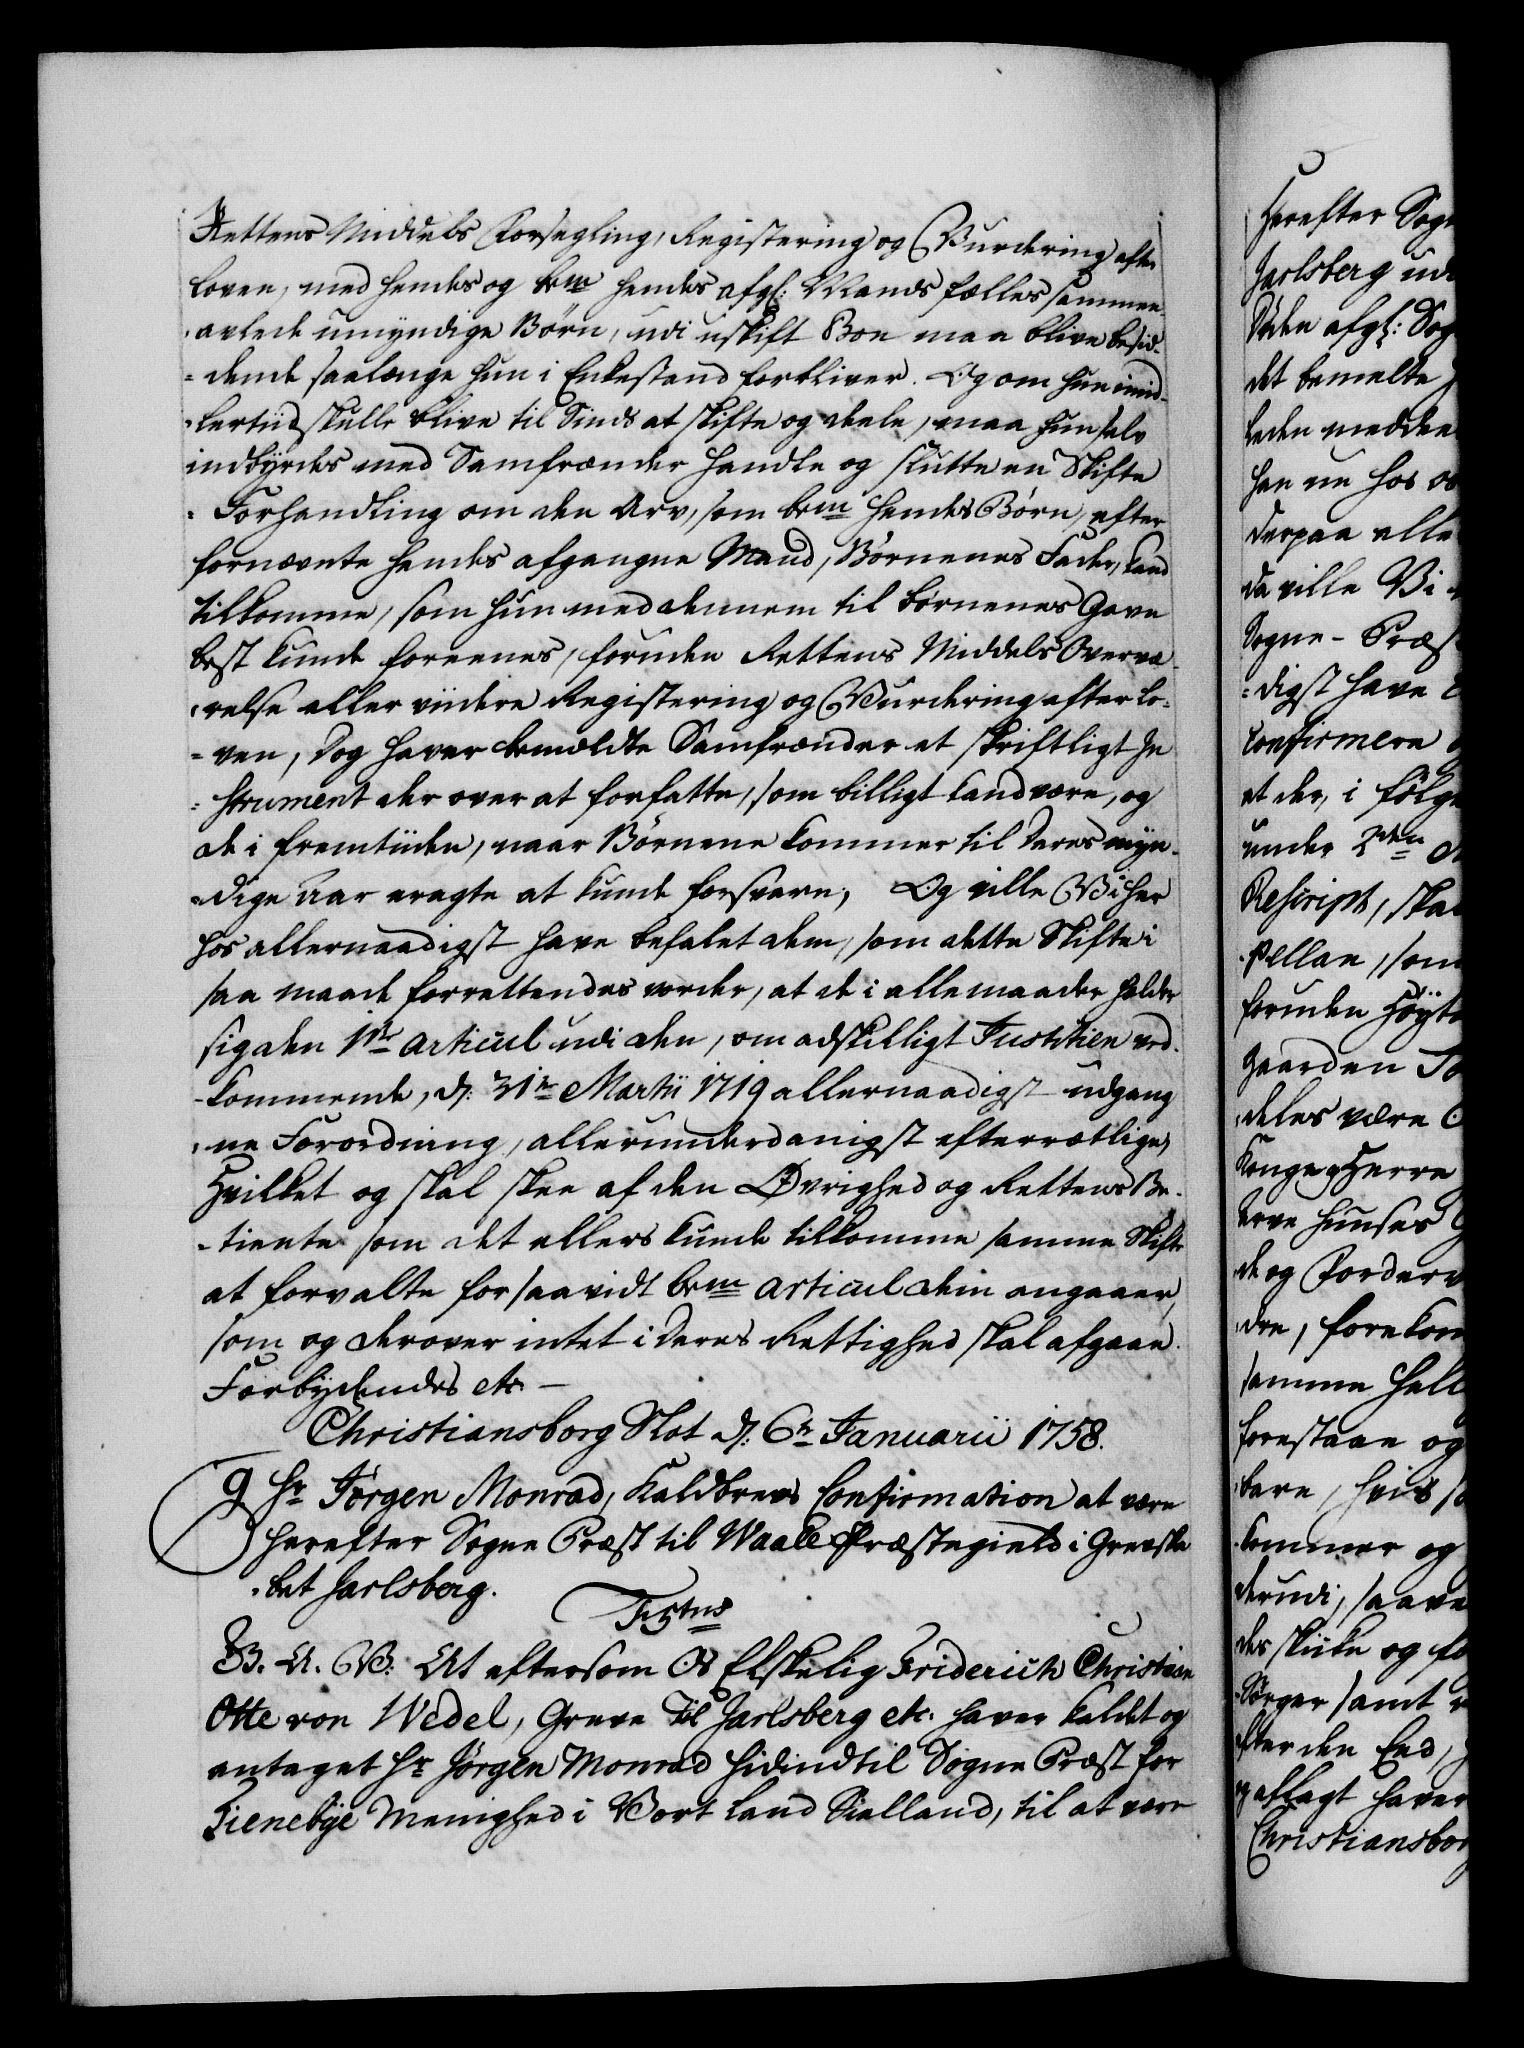 Rettens Middels Forsegling, Registering og Vurdering efter
Loven, med hendes og bem.te hendes afg: Mands fælles sammen-
avlede umyndige Børn, udi uskift Boe maa blive besid-
-dende saalænge hun i Enkestand forbliver. Og om hun imid-
-lertiid skulle blive til Sinds at skifte og deele, maa hun selv
indbyrdes med Samfrænder handle og slutte en Skifte
-Forhandling om den Arv, som bem.te hendes Børn, efter
fornævnte hendes afgangne Mand, Børnenes Fader, kand
tilkomme, som hun med dennem til Børnenes Gavn
best kunde foreenes, foruden Rettens Middels Overvæ-
-relse eller viidere Registering og Vurdering efter Lo-
-ven, Dog haver bemeldte Samfrænder et skriftligt In
-strument der over at forfatte, som billigt kand være, og
de i fremtiiden, naar Børnene kommer til deres myn-
-dige Aar eragte at kunde forsvare, Og ville Vi her
hos allernaadigst have befalet dem, som dette Skifte i
saa maade forrettendes vorder, at de i alle maader holder
sig den 1ste Articul udi den, om adskilligt Justitien ved-
-kommende, d: 31te Martii 1719 allernaadigst udgang
-ne Forordning, allerunderdanigst efterrætlige,
Hvilket og skal skee af den Øvrighed og Rettens Be-
-tiente som det ellers kunde tilkomme samme Skifte
at forvalte forsaavidt bem.te Articul dem angaaer,
som og derover intet i deres Rettighed skal afgaae.
Forbydendes etc. —
Christiansborg Slot d: 6te Januarii 1758.
9 Hr Jørgen Monrad, Kaldbrevs Confirmation at være
herefter Sogne Præst til Waale Præstegield i Grevska
-bet Jarlsberg.
F5tus
G. A. V: At eftersom Os Elskelig Friderich Christian
Otte von Wedel, Greve til Jarlsberg etc. haver kaldet og
antaget Hr Jørgen Monrad hidindtil Sogne Præst for
Tienebye Menighed i Vort Land Sielland, til at være
Herefter Sog
Jarlsberg ud
Døden afg: Sog
det bemelte
heden meddee
han nu hos os
derpaa aller
da ville Vi
Sogne-Præst
-digst have
Confirmere
at der, i følge
under 2den
Rescript, skal
-pellan, som
foruden Høyt
Gaarden
-deles være
Konge og Herre
Arve Huuses
de og Forderv
-dre, forekom
samme Hell
forestaae og
-bare, hvis
-kommer og
derudi, saave
des skikke og
-Sørger samt
fter den Eed,
aflagt haver
Christiansbor